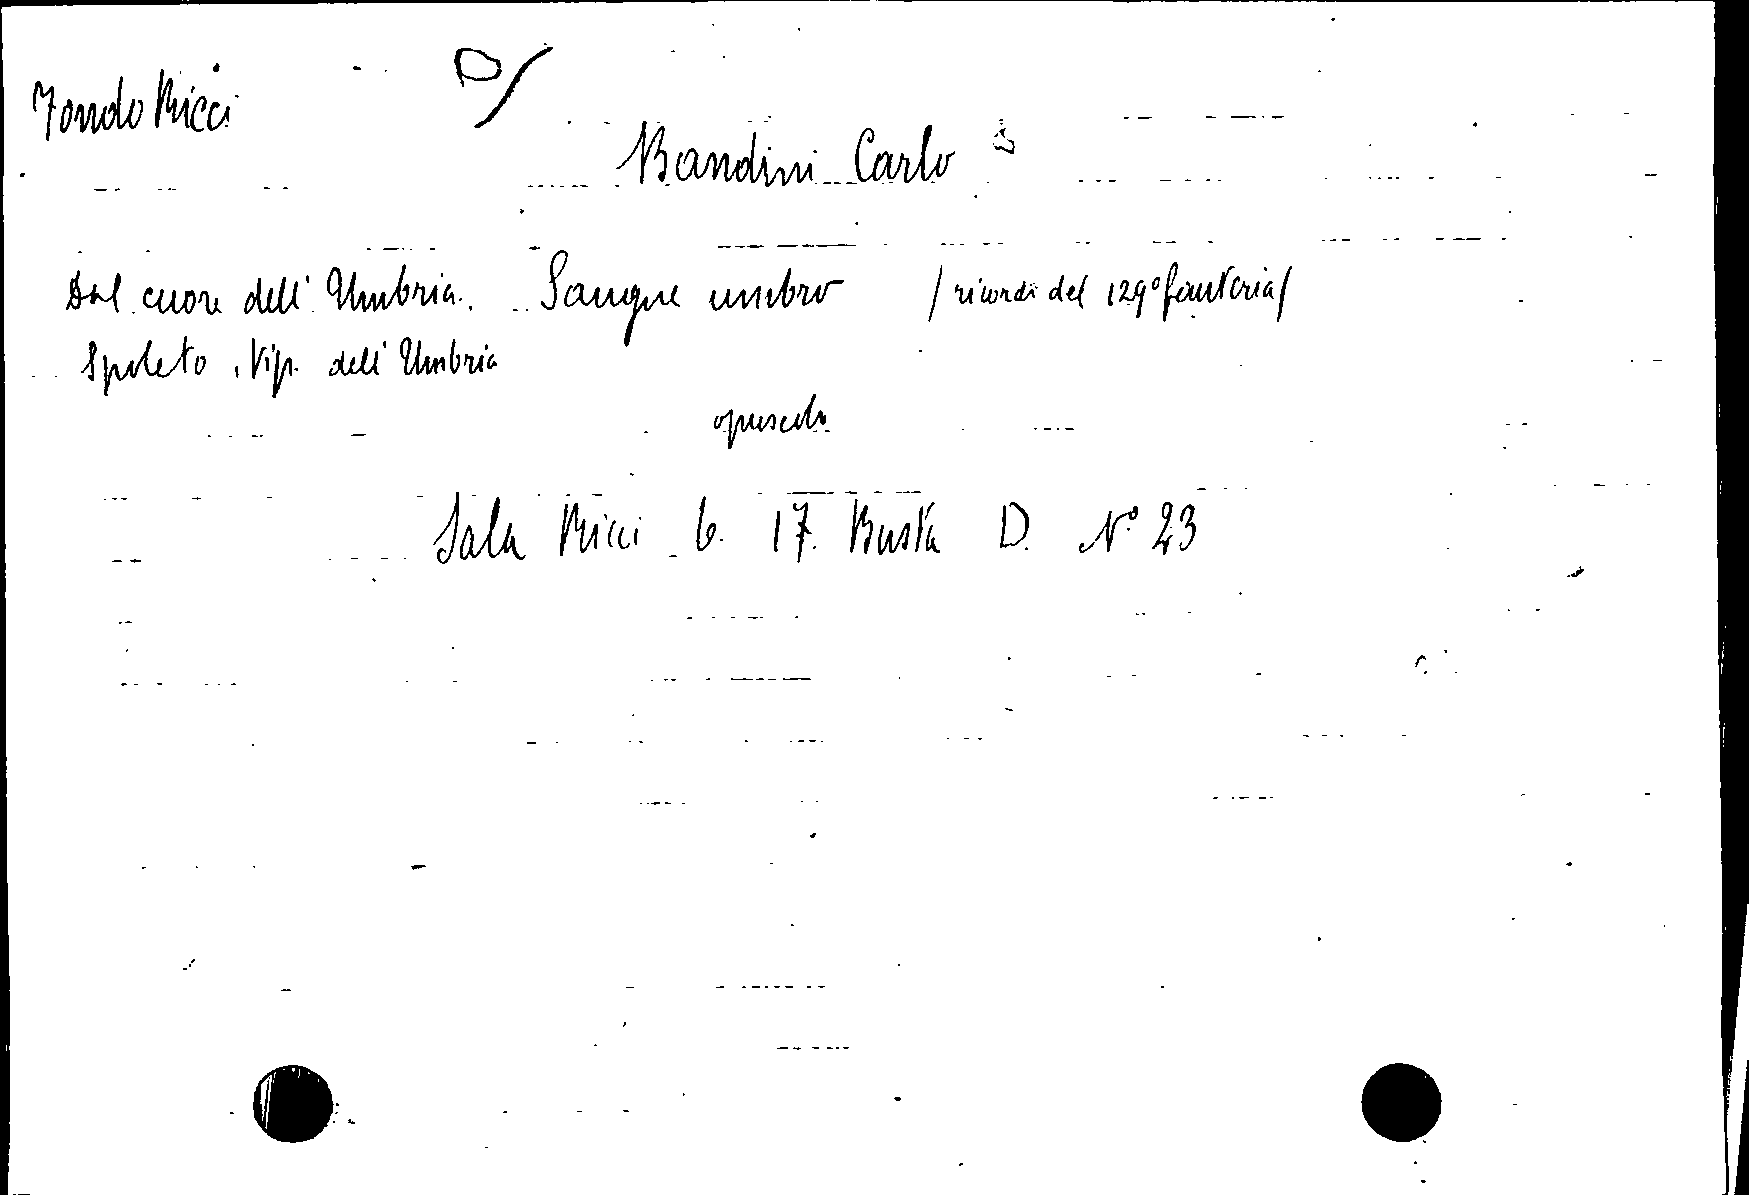 Fondo Ricci
D/
Bandini Carlo
Dal cuore dell'Umbria. Sangue umbro /ricordi del 129º fanteria/
Spoleto, Tip. dell'Umbria
opuscolo
Sala Ricci 6. 17. Busta D. Nº 23